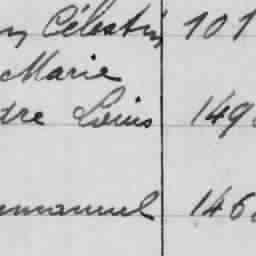 Célestin 101
Marie
dre Louis 149
mmanuel 146